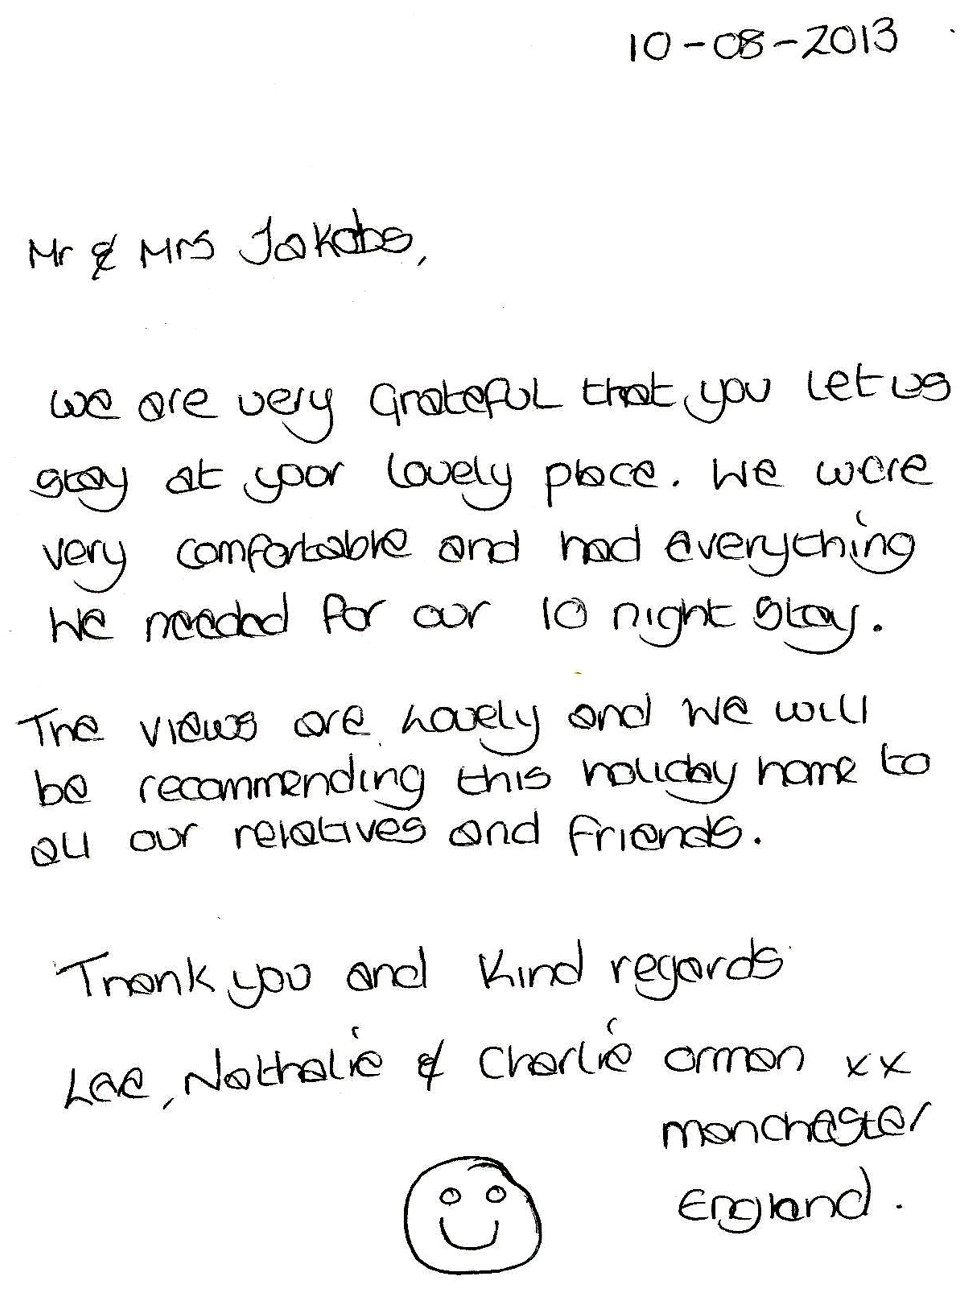 10-08-2013
Mr & Mrs Jakobs,
We are very grateful that you let us
stay at your lovely place. We were
very comfortable and had everything
we needed for our 10 night stay.
The views are lovely and we will
be recommending this holiday home to
all our relatives and friends.
Thank you and kind regards
Lee, Nathalie & Charlie Orman xx
Manchester
England.